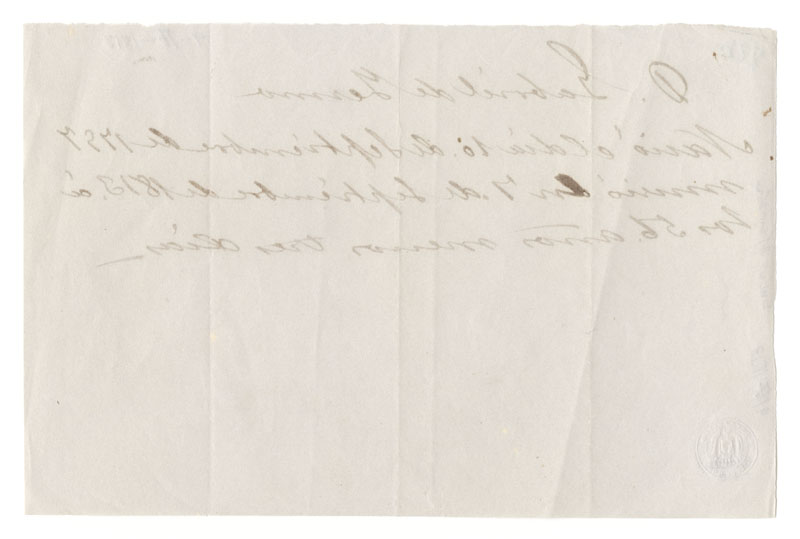 D. Gabriel de Yermo
Nació el dia 10. de Septiembre de 1757
murió en 7. de Septiembre de 1813. á
los 56. años menos tres dias,